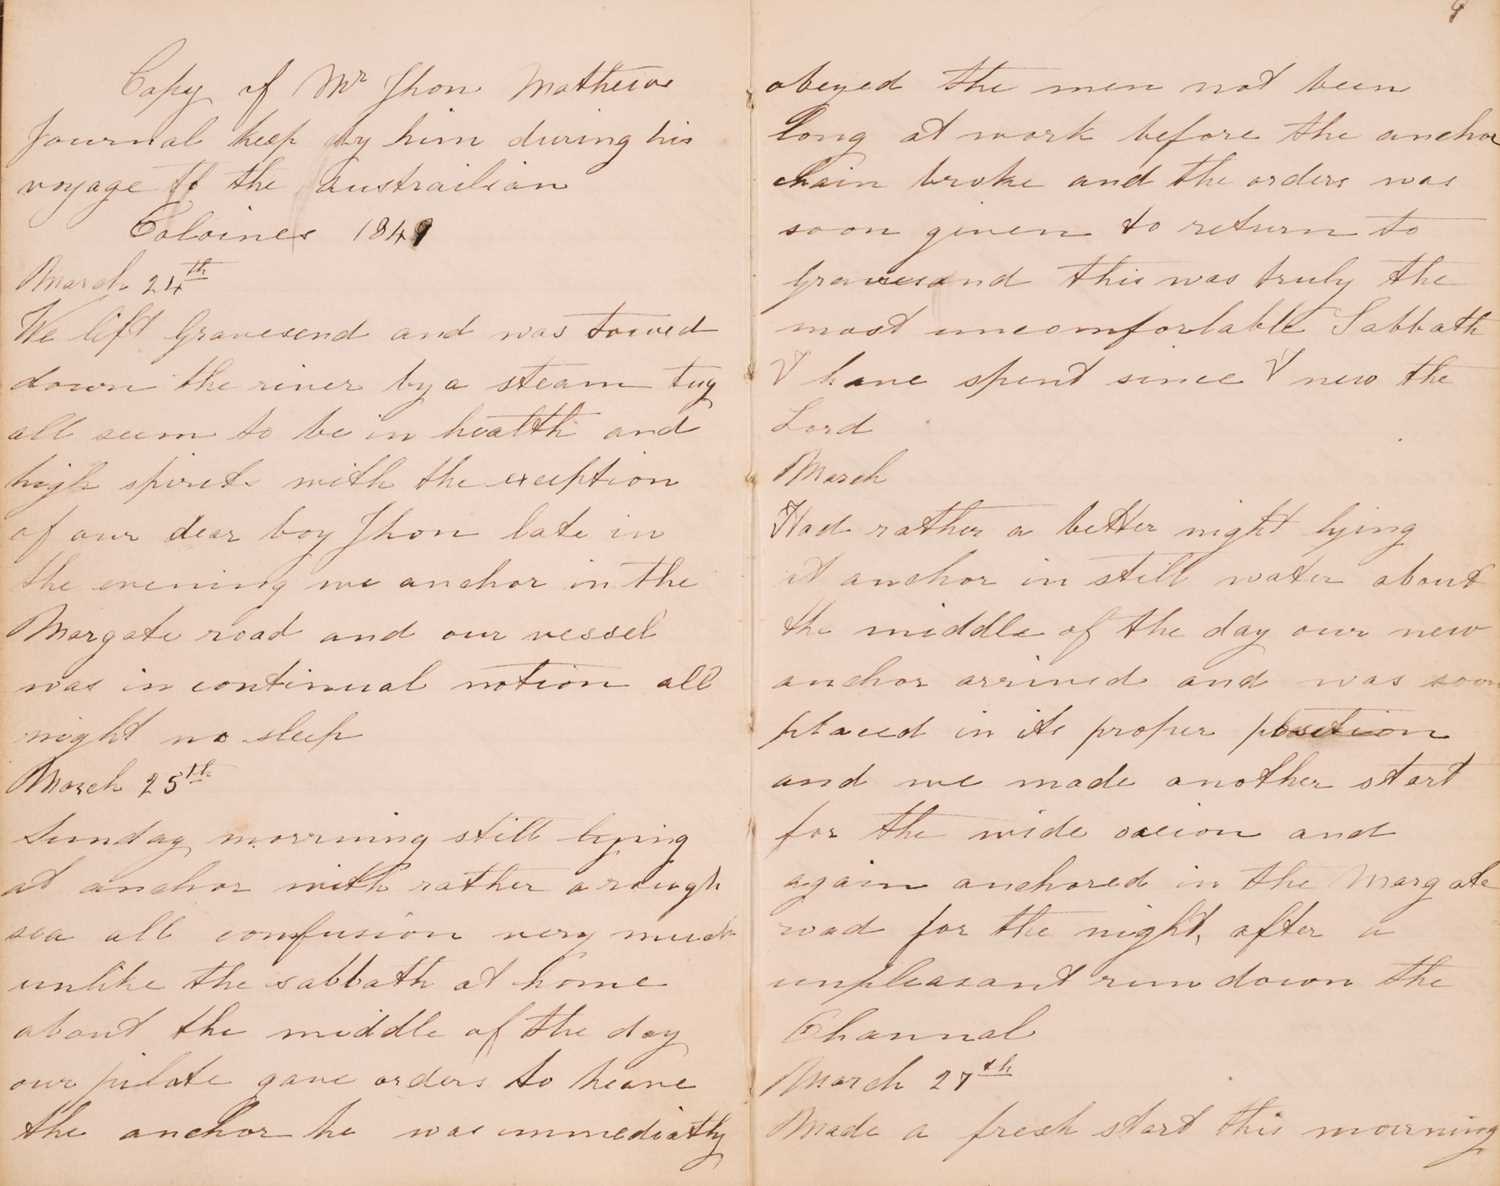 Copy of Mr Jhon Mathews
Journal keep by him during his
voyage to the austrailian
Coloines 1849
March 24th
We lift Gravesend and was towed
down the river by a steam tug
all seem to be in health and
high spirits with the exception
of our dear boy Jhon late in
the evening we anchor in the
Margate road and our vessel
was in continual motion all
night no sleep
March 25th
Sunday morrning still lying
at anchor with rather a rough
sea all confusion very much
unlike the sabbath at home
about the middle of the day
our pilote gave orders to heave
the anchor he was immediatly
obeyed the men not been
long at work before the anchor
chain broke and the orders was
soon given to return to
gravesand this was truly the
most uncomfortable Sabbath
I have spent since I new the
Lord
March
Had rather a better night lying
at anchor in still water about
the middle of the day our new
anchor arrived and was soon
placed in its proper position
and we made another start
for the wide ocion and
again anchored in the Margate
road for the night, after a
unpleasant run down the
Channal
March 27th
Made a fresh start this mourning